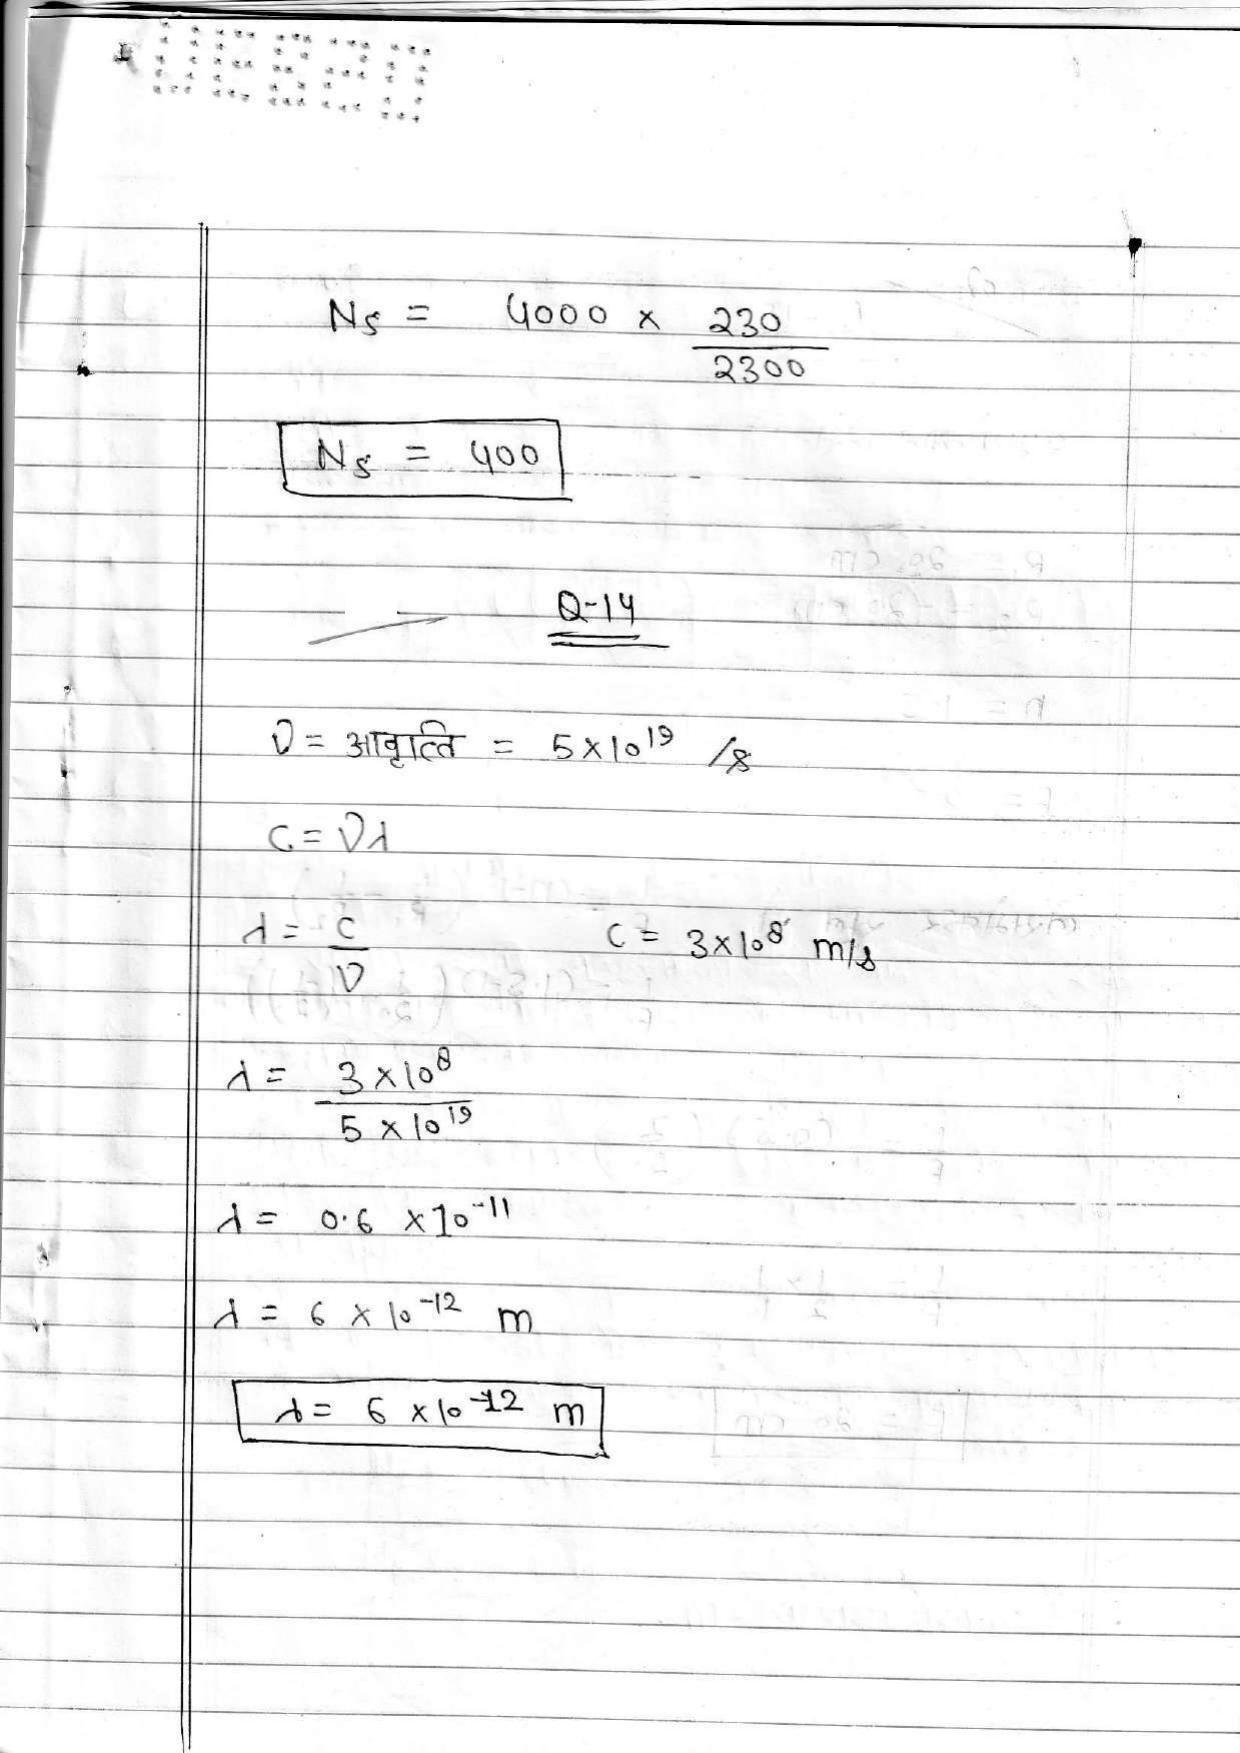 Ns = 4000 × 230/2300
Ns = 400
Q-14
ν = आवृत्ति = 5×10¹⁹ /s
C = νλ
λ = C/ν C = 3×10⁸ m/s
λ = 3×10⁸/5×10¹⁹
λ = 0.6 ×10⁻¹¹
λ = 6 × 10⁻¹² m
λ = 6 ×10⁻¹² m